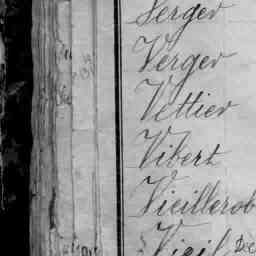 Verger
Verger
Vettier
Vibert
Vieillerob
Vieil